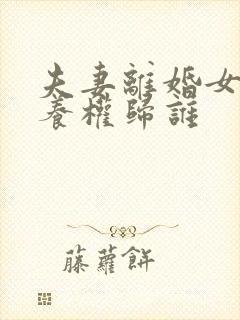 夫妻離婚女
養權歸誰
藤蘿餅